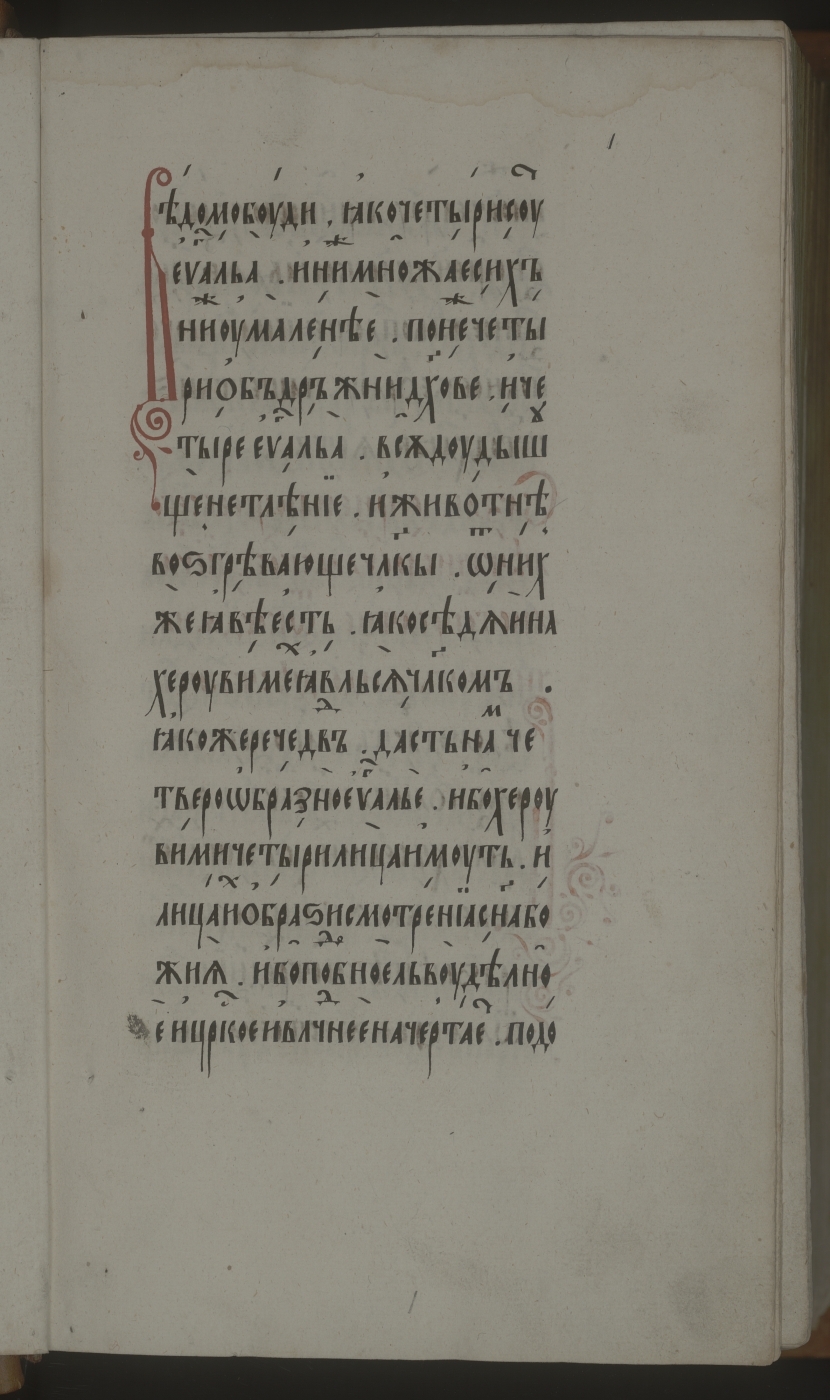 Вѣдомо боуди . ꙗко четыри соу҇
еѵа҇льа . ни нимножаⷤе сихъ
нниⷤ оумаленѣе . понеⷤ четы
ри обьдръжни дх҃ове . и че
тыре еѵа҇льа . всѫдоу дышꙋ
ще нетлѣнїе . и животнѣ
воѕгрѣвающе чл҃кы . ѿ них
же ꙗвѣ есть . ꙗко сѣдѧи на
хероувимеⷯ ꙗвльсѧ чл҃комъ .
ꙗкоже рече дв҃дъ . дасть наⷨ че
твероѡбразное еѵа҇лье . ибо хероу
вими четыри лица имоуть . и
лицаⷯ и образи смотренїа сн҃а бо
жиѧ . ибо поⷣбное льво удѣлно
е и цр҇кое и влⷣчнее начертае҇ . подо